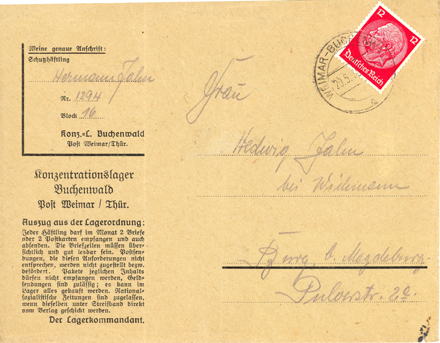 Meine genaue Anschrift:
Schutzhäftling
Hermann Jahn
Nr. 1294
Block 16
Konz.-L. Buchenwald
Post Weimar/Thür.
Konzentrationslager
Buchenwald
Post Weimar / Thür.
Auszug aus der Lagerordnung:
Jeder Häftling darf im Monat 2 Briefe
oder 2 Postkarten empfangen und auch
absenden. Die Briefzeilen müssen über-
sichtlich und gut lesbar sein. Postsen-
dungen, die diesen Anforderungen nicht
entsprechen, werden nicht zugestellt bezw.
befördert. Pakete jeglichen Inhalts
dürfen nicht empfangen werden, Geld-
sendungen sind zulässig; es kann im
Lager alles gekauft werden. National-
sozialistische Zeitungen sind zugelassen,
wenn dieselben unter Streifband direkt
vom Verlag geschickt werden.
Der Lagerkommandant.
WEIMAR-BUCH
20.5.
12 12
Deutsches Reich
Frau
Hedwig Jahn
bei Widemann
Burg b. Magdeburg